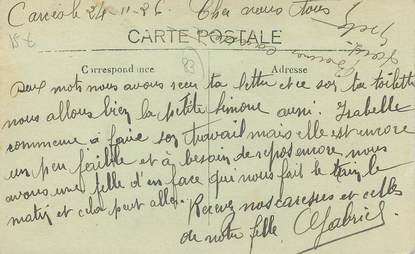 24-11-26. Cher nous tous
CARTE POSTALE
Correspondance
Adresse
83
Deux mots nous avons reçu ta lettre et ce sur ta toilette
nous allons bien la petite Simone aussi. Isabelle
commence à faire son travail mais elle est encore
un peu faible et à besoin de repos encore nous
avons une fille d'en face qui nous fait le
matin et cela peut aller.
Recevez nos caresses et celles
de notre fille. Gabriel